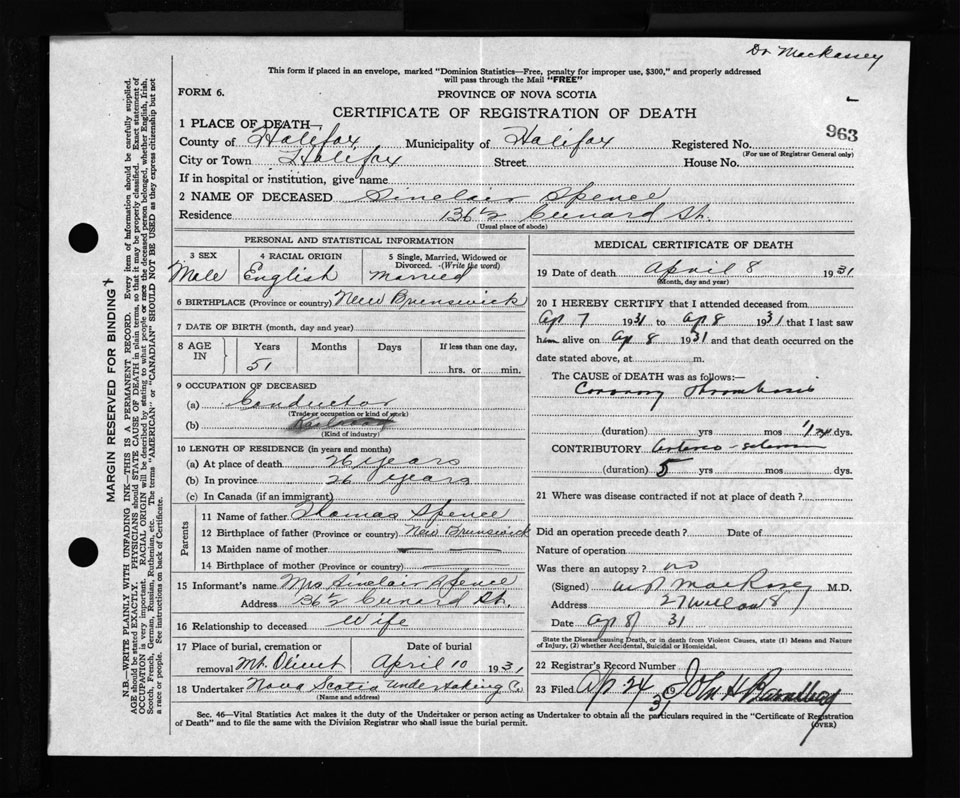 Dr Mackasey
This form if placed in an envelope, marked "Dominion Statistics—Free, penalty for improper use, $300," and properly addressed
will pass through the Mail "FREE"
FORM 6.
PROVINCE OF NOVA SCOTIA
CERTIFICATE OF REGISTRATION OF DEATH
963
1 PLACE OF DEATH—
County of Halifax Municipality of Halifax Registered No.
(For use of Registrar General only)
City or Town Halifax Street House No.
If in hospital or institution, give name
2 NAME OF DECEASED Sinclair Spence
Residence 136½ Cunard St.
(Usual place of abode)
PERSONAL AND STATISTICAL INFORMATION
3 SEX 4 RACIAL ORIGIN 5 Single, Married, Widowed or
Divorced. -(Write the word)
Male English Married
6 BIRTHPLACE (Province or country) New Brunswick
7 DATE OF BIRTH (month, day and year)
8 AGE IN Years Months Days If less than one day,
51 hrs. or min.
9 OCCUPATION OF DECEASED
(a) Conductor
(Trade or occupation or kind of work)
(b) Railroad
(Kind of industry)
10 LENGTH OF RESIDENCE (in years and months)
(a) At place of death 26 years
(b) In province 26 years
(c) In Canada (if an immigrant)
Parents
11 Name of father Thomas Spence
12 Birthplace of father (Province or country) New Brunswick
13 Maiden name of mother — —
14 Birthplace of mother (Province or country)
15 Informant's name Mrs Sinclair Spence
Address 136½ Cunard St.
16 Relationship to deceased Wife
17 Place of burial, cremation or Date of burial
removal Mt. Olivet April 10 1931
18 Undertaker Nova Scotia Undertaking Co.
(Name and address)
MEDICAL CERTIFICATE OF DEATH
19 Date of death April 8 1931
(Month, day and year)
20 I HEREBY CERTIFY that I attended deceased from
Ap 7 1931 to Ap 8 1931 that I last saw
him alive on Ap 8 1931 and that death occurred on the
date stated above, at m.
The CAUSE OF DEATH was as follows:
Coronary Thrombosis
(duration) yrs mos dys.
CONTRIBUTORY
(duration) 5 yrs mos dys.
21 Where was disease contracted if not at place of death?
Did an operation precede death? Date of
Nature of operation
Was there an autopsy? no
(Signed) M.D.
Address
Date Ap 8 31
State the Disease causing Death, or in death from Violent Causes, state (1) Means and Nature
of Injury, (2) whether Accidental, Suicidal or Homicidal.
22 Registrar's Record Number
23 Filed Ap 24 31 John H
Sec. 46—Vital Statistics Act makes it the duty of the Undertaker or person acting as Undertaker to obtain all the particulars required in the "Certificate of Registration
of Death" and to file the same with the Division Registrar who shall issue the burial permit.
(OVER)
MARGIN RESERVED FOR BINDING
N.B.—WRITE PLAINLY WITH UNFADING INK—THIS IS A PERMANENT RECORD. Every item of information should be carefully supplied.
AGE should be stated EXACTLY. PHYSICIANS should STATE CAUSE OF DEATH in plain terms, so that it may be properly classified. Exact statement of
OCCUPATION is very important. RACIAL ORIGIN will be described by stating to what people or race the deceased person belonged, whether English, Irish,
Scotch, French, German, Russian, Ruthenian, etc. The terms "AMERICAN" or "CANADIAN" SHOULD NOT BE USED as they express citizenship but not
a race or people. See instructions on back of Certificate.